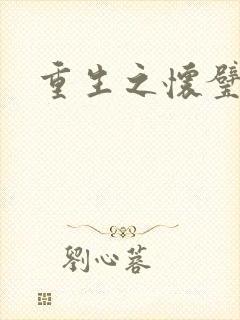 重生之懷璧
劉心蓉